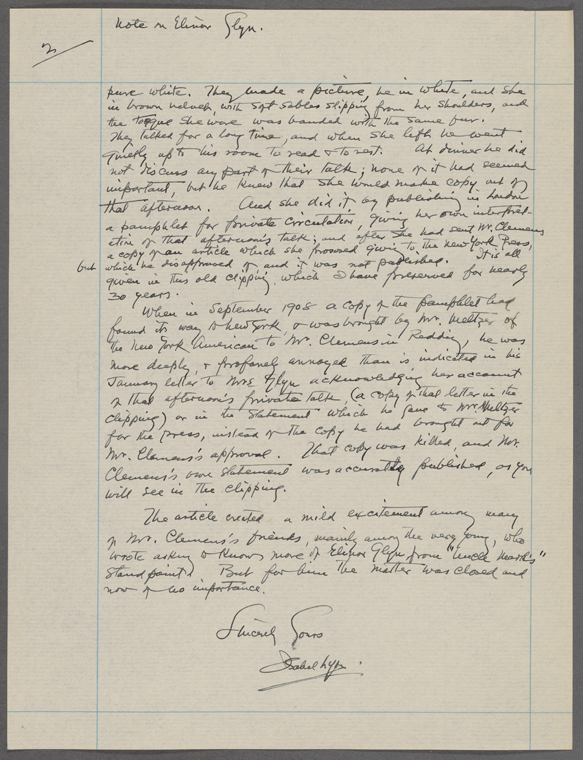 Note on Elinor Glyn.
2/
pure white. They made a picture, he in white, and she
in brown velvet, with soft sables slipping from her shoulders, and
the toque she wore was banded with the same fur.
They talked for a long time, and when she left he went
quietly up to his room to read & to rest. At dinner he did
not discuss any part of their talk; none of it had seemed
important, but he knew that she would make copy out of
that afternoon. And she did it by publishing in London
a pamphlet for private circulation, giving her own interpret-
ation of that afternoon's talk; and after she had sent Mr. Clemens
a copy of an article which she proposed giving to the New York Press,
but which he disapproved of, and it was not published. It is all
given in this old clipping, which I have preserved for nearly
30 years.
When in September 1908 a copy of the pamphlet had
found its way to New York, & was brought by Mr. Meltzer of
the New York American to Mr. Clemens in Redding, he was
more deeply, & profanely annoyed than is indicated in his
January letter to Mrs Glyn acknowledging her account
of that afternoon's private talk, (a copy of that letter in the
clipping) or in the statement which he gave to Mr. Meltzer
for the press, instead of the copy he had brought up for
Mr. Clemens's approval. That copy was killed, and Mr.
Clemens's own statement was accurately published, as you
will see in the clipping.
The article created a mild excitement among many
of Mr. Clemens's friends, mainly among the very young, who
wrote asking to know more of Elinor Glyn from "Uncle Mark's"
standpoint. But for him the matter was closed and
now of no importance.
Sincerely Yours
Isabel Lyon.